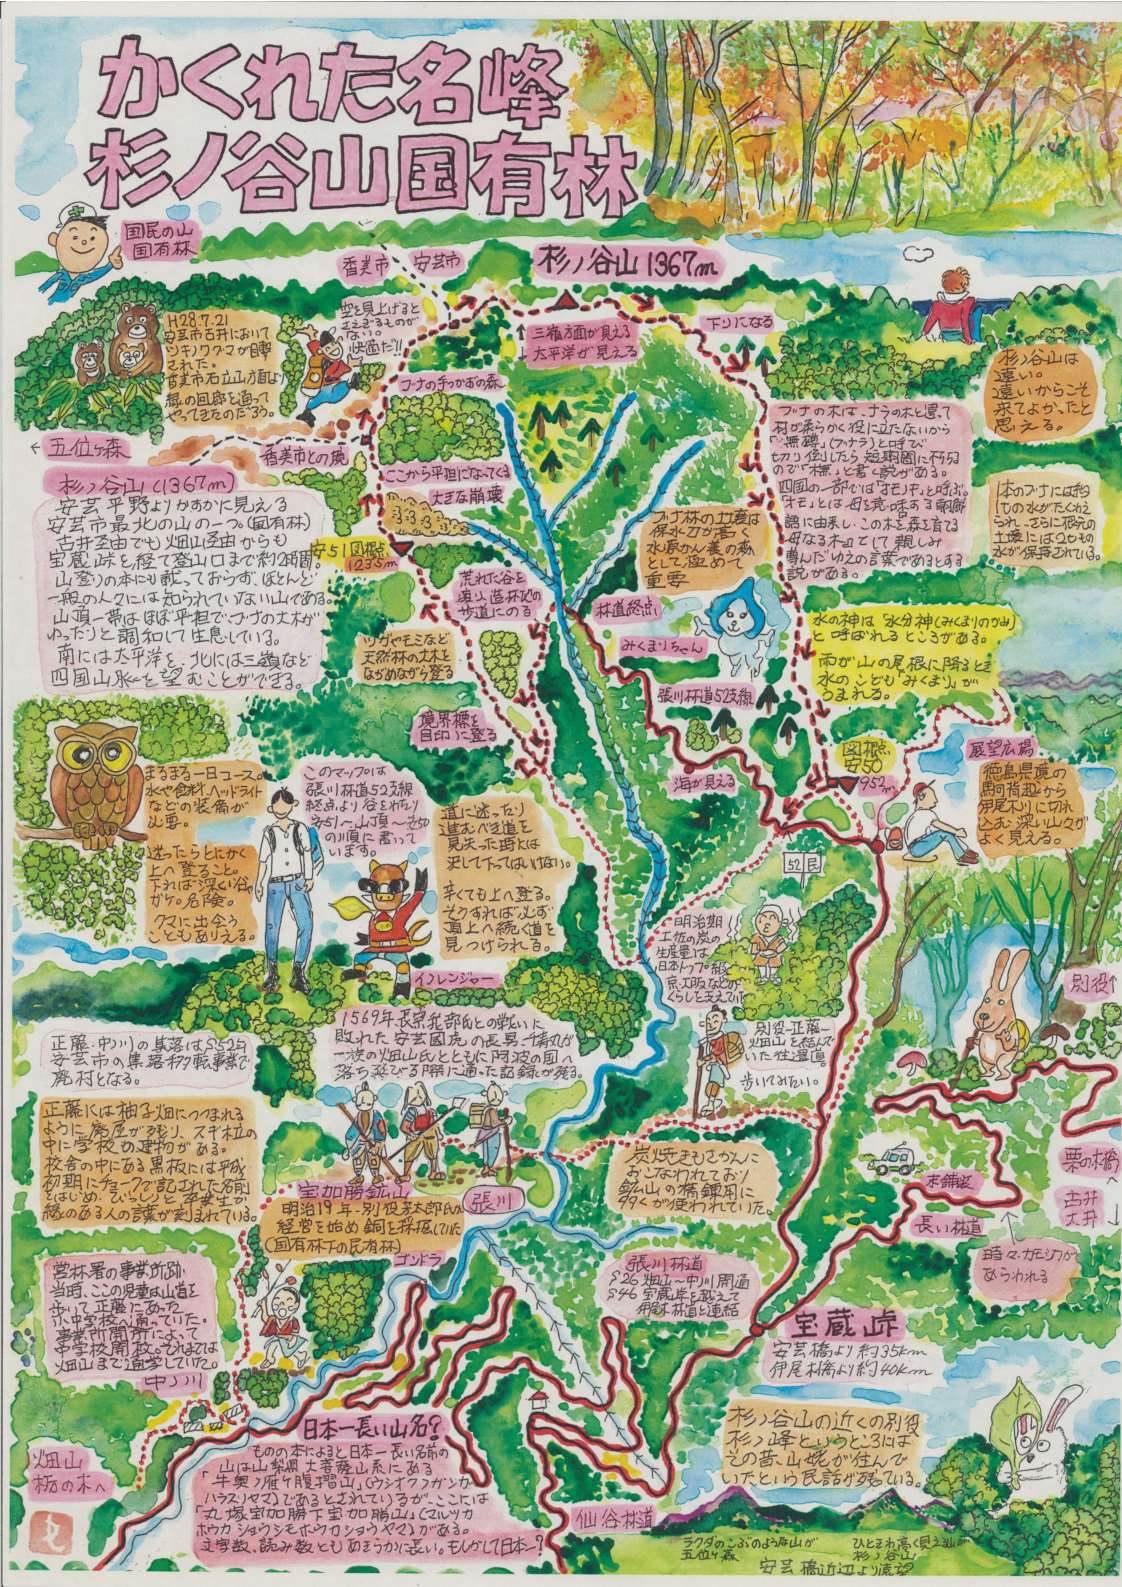 かくれた名峰
杉ノ谷山国有林
国民の山
国有林
香美市
安芸市
杉ノ谷山1367m
H28.7.21
安芸市古井において
ツキノワグマが目撃
された。
香美市石立山方面より
緑の回廊を通って
やってきたのだろう。
空を見上げると
さえぎるものが
ない。
快適だ!!
三嶺方面が見える
太平洋が見える
下りになる
杉ノ谷山は
遠い。
遠いからこそ
来てよかったと
思える。
ブナの手つかずの森
←五位ヶ森
香美市との境
ここから平坦になってくる
大きな崩壊
ブナの木は、ナラの木と違って
材が柔らかく役に立たないから
「無
と呼び
切り倒したら短期間に朽ちる
ので「橅」と書く説がある。
四国の一部では「オモノキ」と呼ぶ。
「オモ」とは母を意味する
語に由来し、この木を森を育てる
母なる木として親しみ
尊んだゆえの言葉であるとする
説がある。
1本のブナには約
1tの水がたくわえ
られ、さらに根元の
土壌には20tもの
水が保持されている。
杉ノ谷山(1367m)
安芸平野よりかすかに見える
安芸市最北の山の一つ。(国有林)
古井経由でも畑山経由からも
宝蔵峠を経て登山口まで約2時間。
山登りの本にも載っておらず、ほとんど
一般の人々には知られていない山である。
山頂一帯はほぼ平坦でブナの大木が
ゆったりと調和して生息している。
南には太平洋を、北には三嶺など
四国山脈を望むことができる。
安51図根点
1235m
ブナ林の土壌は
保水力が高く
水源かん養の森
として極めて
重要
荒れた谷を
渡り造林地の
歩道にのる
林道終点
みくまりちゃん
水の神は「水分神(みくまりのかみ)
と呼ばれるところがある。
雨が山の尾根に降るとき
水のこども「みくまり」が
うまれる。
ツガやモミなど
天然林の大木を
ながめながら登る
張川林道52支線
境界標を
目印に登る
海が見える
図根点
安50
952m
展望広場
徳島県境の
から
伊尾木川に切れ
込む深い山々が
よく見える。
まるまる一日コース。
水や食料、ヘッドライト
などの装備が
必要。
迷ったらとにかく
上へ登ること。
下れば深い谷や
がけ。危険。
クマに出会う
こともありえる。
このマップは
張川林道52支線
終点より谷をわたり
安51～山頂～安50
の順に書いて
います。
道に迷ったり
進むべき道を
見失った時は
決して下ってはいけない。
辛くても上へ登る。
そうすれば必ず
頂上へ続く道を
見つけられる。
52民
イノレンジャー
明治期
土佐の炭の
生産量は
日本トップ級
京、大阪などの
くらしを支えていた
別役
正藤・中ノ川の集落はS52年
安芸市の集落移転事業で
廃村となる。
1569年長宗我部氏との戦いに
敗れた安芸国虎の長男 千寿丸が
一族の畑山氏とともに阿波の国へ
落ち延びる際に通った記録が残る。
別役-正藤-
畑山を結んで
いた往還道
歩いてみたい。
正藤には柚子畑につつまれる
ように廃屋が残り、スギ木立の
中に学校の建物がある。
校舎の中にある黒板には平成
初期にチョークで記された名前
をはじめ、びっしりと卒業生や
縁のある人の言葉が刻まれている。
宝加勝鉱山
明治19年-別役
経営を始め銅を採掘していた
(国有林下の民有林)
張川
炭焼きもさかんに
おこなわれており
鉱山の精錬用に
多くが使われていた。
栗の木橋
古井
大井
長い林道
時々カモシカが
あらわれる
ゴンドラ
営林署の事業所跡
当時、ここの児童は山道を
歩いて正藤にあった
小中学校へ通っていた。
事業所開所によって
中学校開校、それまでは
畑山まで通学していた。
中ノ川
張川林道
S26畑山～中ノ川開通
S46宝蔵峠を越えて
伊尾木林道と連結
宝蔵峠
安芸橋より約35km
伊尾木橋より約40km
畑山
栃の木へ
日本一長い山名?
ものの本によると日本一長い名前の
山は山梨県大菩薩山系にある
「牛奥ノ雁ヶ腹摺山」(ウシオクノガンガ
ハラスリヤマ)であるとされているが、ここには
「丸塚宝加勝下宝加勝山」(マルツカ
ホウカショウシモホウカショウヤマ)がある。
文字数、読み数ともあきらかに長い。もしかして日本一?
仙谷林道
杉ノ谷山の近くの別役
杉ノ峰というところには
その昔、山姥が住んで
いたという民話が残っている。
ラクダのこぶのような山が
五位ヶ森
ひときわ高く見える山が
杉ノ谷山
安芸橋近辺より遠望